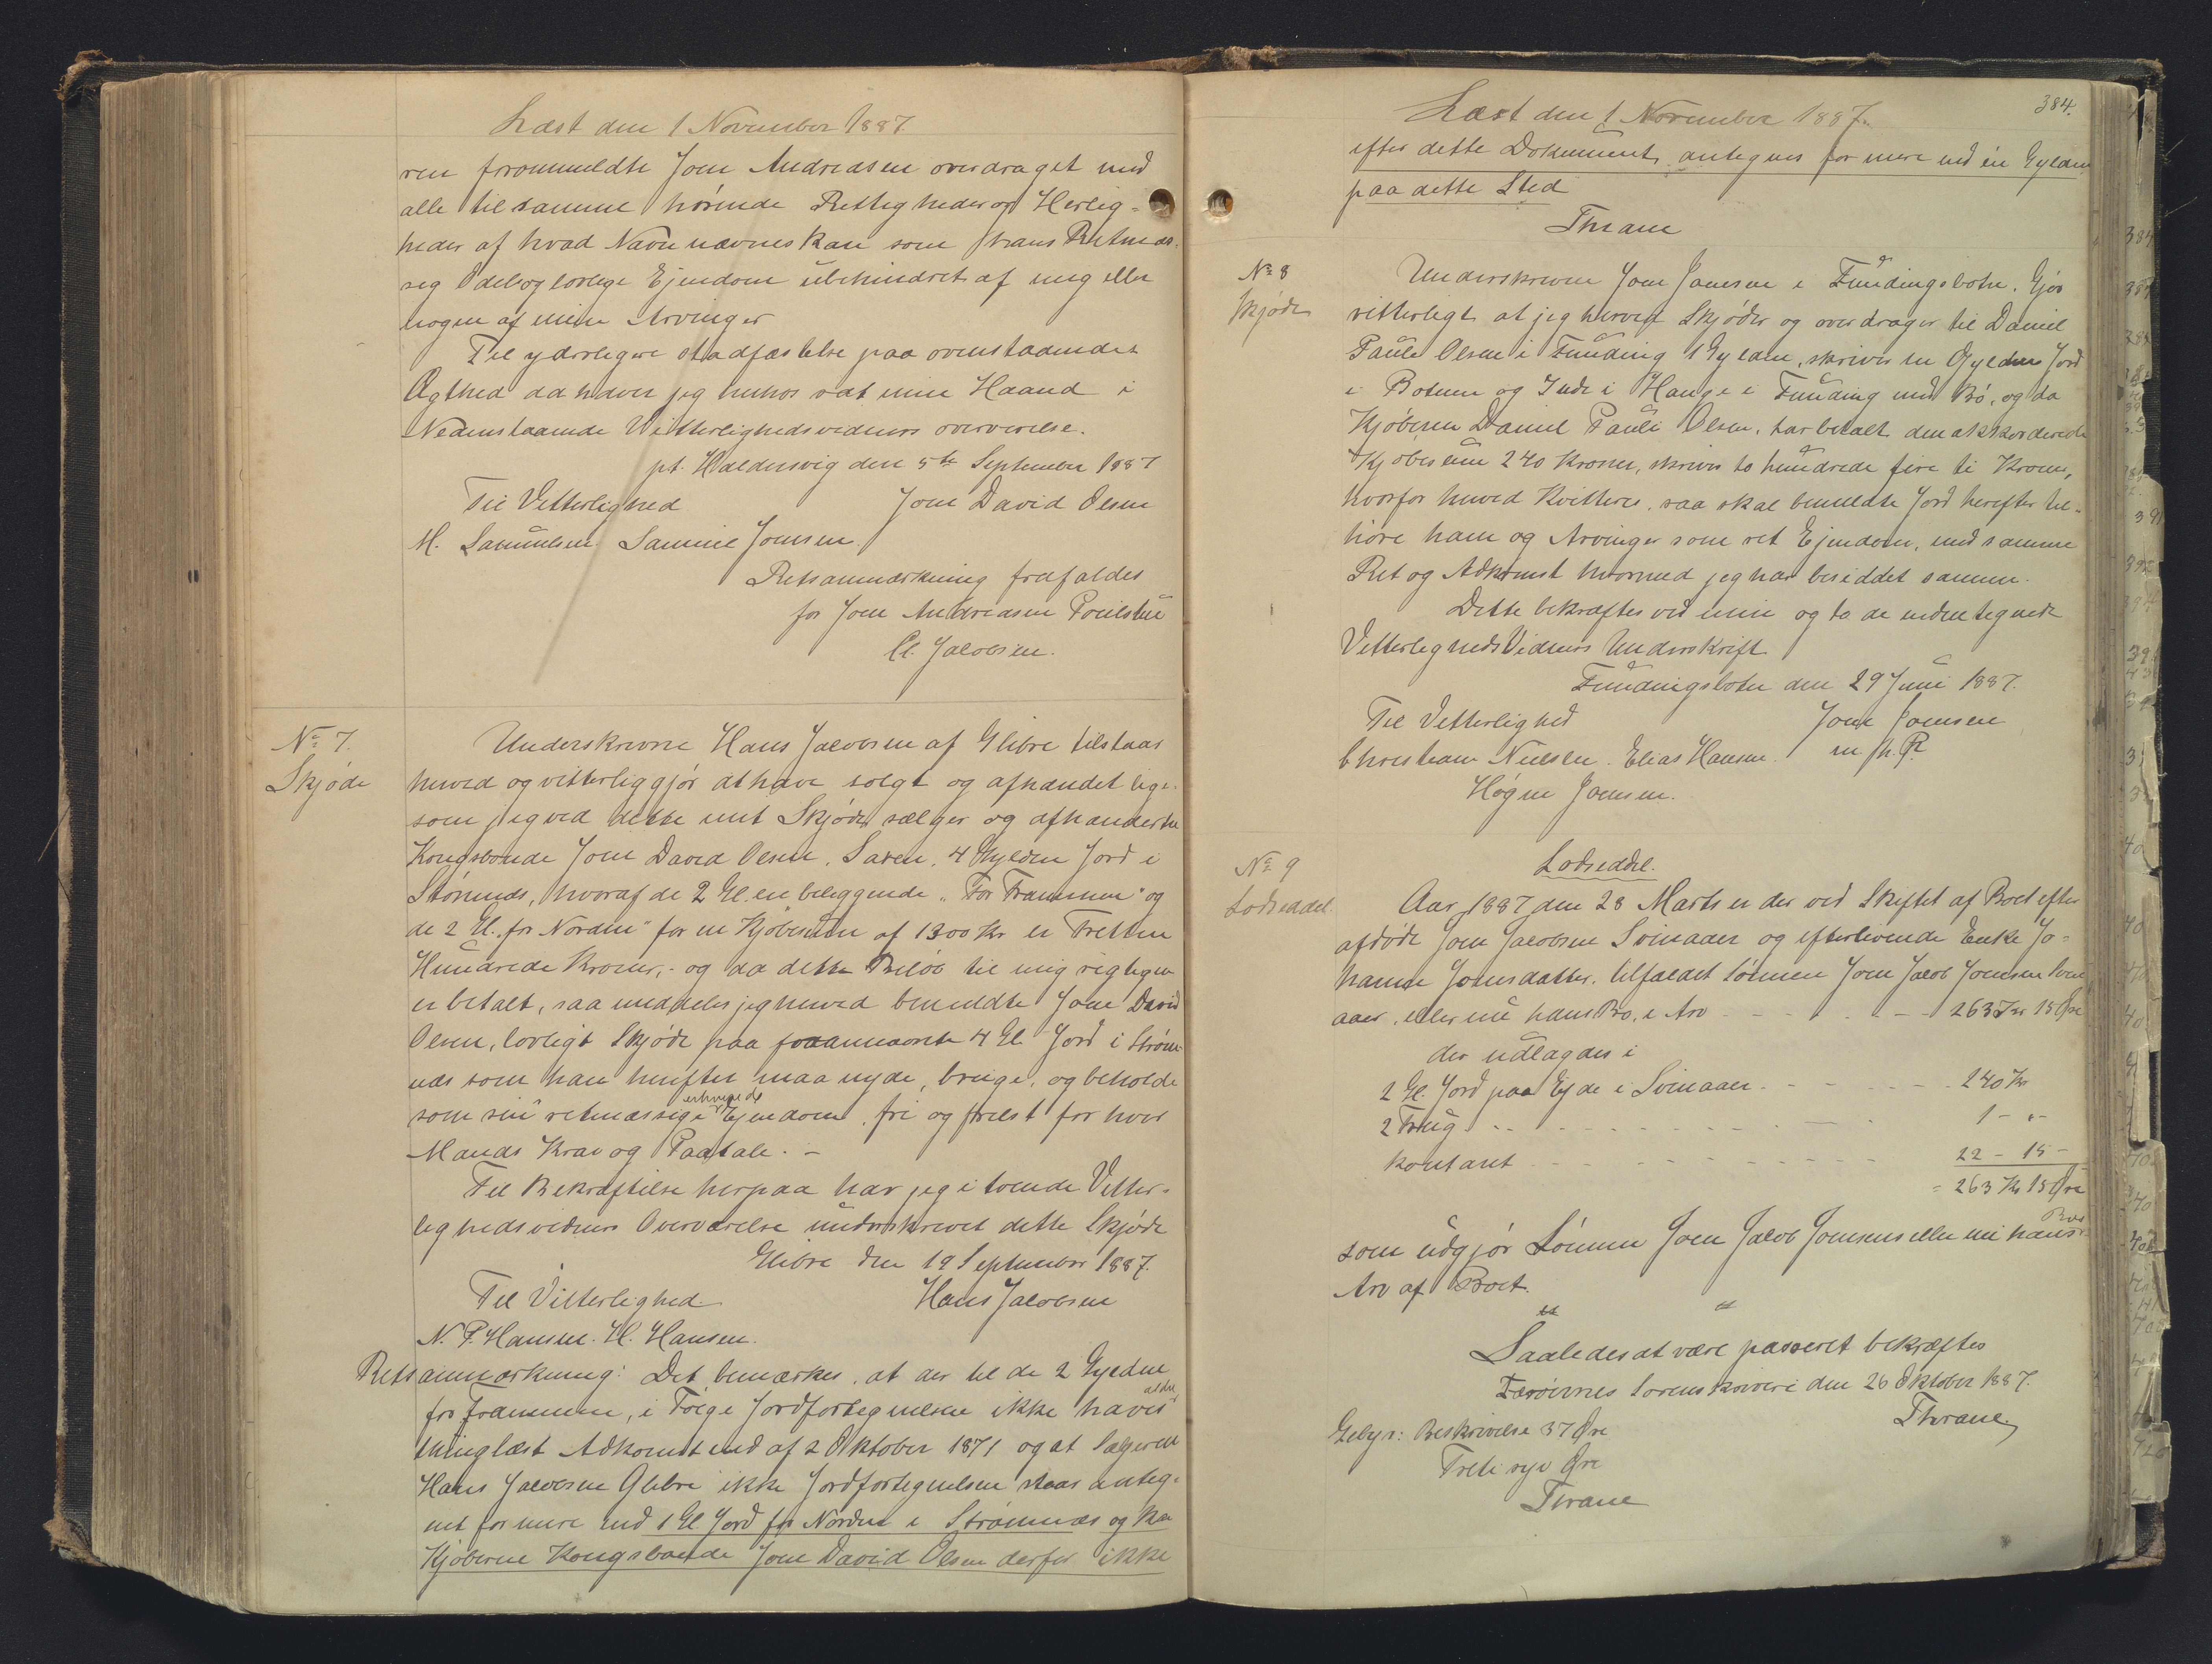 Læst den 1 November 1887
ren forommeldte Joen Andreasen overdraget med
alle til samme hørende Rettigheder og Herlig-
heder af hvad Navn nævnes kan som hans Retmæs-
sig Odels og lovlige Ejendom ubehindret af mig eller
nogen af mine Arvinger
Til yderligere stadfæstelse paa ovenstaaende
Ægthed da haver jeg hernos sat min Haand i
Nedenstaaende Vitterlighedsvidners overværelse.
pt. Haldersvig den 5te September 1887
Til Vitterlighed Joen David Olsen
M. Samuelsen. Samuel Joensen.
Retsanmærkning frafaldes
for Joen Andreasen
Cl. Jacobsen.
No 7.
Skjøde
Underskrevne Hans Jacobsen af Glibre tilstaar
herved og vitterliggjør at have solgt og afhændet lige-
som jeg ved dette mit Skjøde sælger og afhænder til
Kongsbonde Joen David Olsen, Saxen, 4 Gylden Jord i
Strømnæs, hvoraf de 2 Gl. en beliggende "For Frammen" og
de 2 Gl. for Norden" for en Kjøbesum af 1300 Kr er Tretten
Hundrede Kroner,- og da dette Beløb til mig rigtigen
er betalt, saa meddeler jeg herved bemeldte Joen David
Olsen, lovligt Skjøde paa foranævnte 4 Gl. Jord i Strøm-
næs som han herefter maa nyde, bruge, og beholde
som sin retmæssige erhvervede Ejendom, fri og frelst for hver
Mands Krav og Paatale. -
Til Bekræftelse herpaa har jeg i tvende Vitter-
lighedsvidners Overværelse underskrevet dette Skjøde
Glibre den 19 September 1887.
Til Vitterlighed Hans Jacobsen
N. P. Hansen. H. Hansen.
Retsanmærkning: Det bemærkes, at der til de 2 Gylden
for Frammen, i Følge Jordfortegnelsen ikke haves ældre
thinglæst Adkomst end af 2 Oktober 1871 og at Sælgeren
Hans Jacobsen Glibre ikke Jordfortegnelsen staar anteg-
net for mere end 1 Gl Jord for Norden i Strømnæs og kan
Kjøberne Kongsbonde Joen David Olsen derfor ikke
Læst den 1 November 1887.
384.
efter dette Dokument antegnes for mere end én Gylden
paa dette Sted
Thrane
No 8
Skjøde
Underskrevne Joen Joensen i Fundingsbotn. Gjør
vitterligt at jeg herved Skjøder og overdrager til Daniel
Pauli Olsen i Funding 1 Gylden, skriver en Gylden Jord
i Botnen og Inde i Hauge i Funding med Bø, og da
Kjøberen Daniel Pauli Olsen, har betalt den akkorderede
Kjøbesum 240 Kroner, skriver to hundrede fire ti Kroner,
hvorfor herved kvitteres, saa skal bemeldte Jord herefter til-
høre ham og Arvinger som ret Ejendom, med samme
Ret og Adkomst hvormed jeg har besiddet samme.
Dette bekræftes ved min og to de undertegnede
VitterlighedsVidners Underskrift
Fundingsbotn den 29 Juni 1887.
Til Vitterlighed Joen Joensen
Christian Nielsen. Elias Hansen. m. f. P.
Høgne Joensen.
No 9
Lodseddel.
Lodseddel.
Aar 1887 den 28 Marts er der ved Skiftet af Boet efter
afdøde Joen Jacobsen Svinaaer og efterlevende Enke Jo-
hanne Joensdatter, tilfaldet Sønnen Joen Jacob Joensen Svin
aaer, eller nu hans Bo, i Arv - - - - 263 Kr 15 Øre
der udlagdes i
2 Gl. Jord paa Eyde i Svinaaer. - - - - 240 Kr
2 Trug - - - - 1 - " -
Kontant - - - - 22 - 15 -
= 263 Kr 15 Øre
som udgjør Sønnen Joen Jacob Joensens eller nu hans Bos
Arv af Boet.
Saaledes at være passeret bekræftes
Færøernes Sorenskriveri den 26 Oktober 1887.
Thrane
Gebyr: Beskrivelse 37 Øre
Treti syv Øre
Thrane